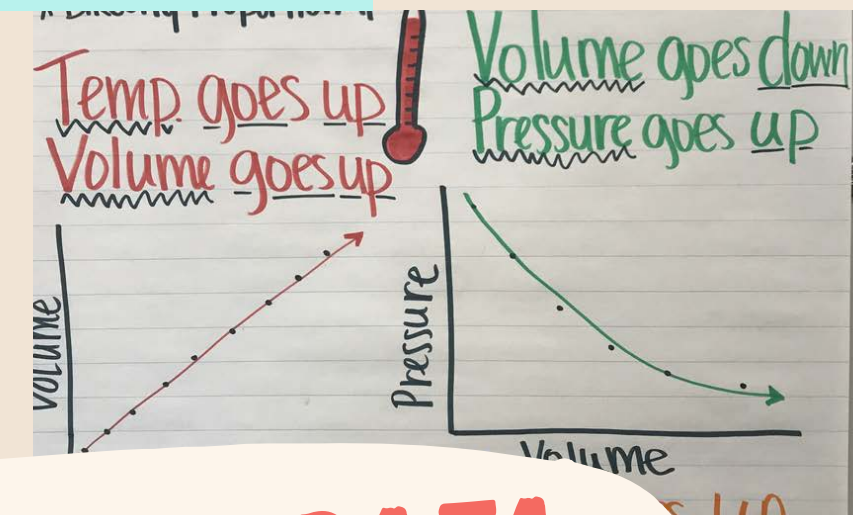 Temp. goes up
Volume goes up
Volume
Volume goes down
Pressure goes up
Pressure
Volume
up